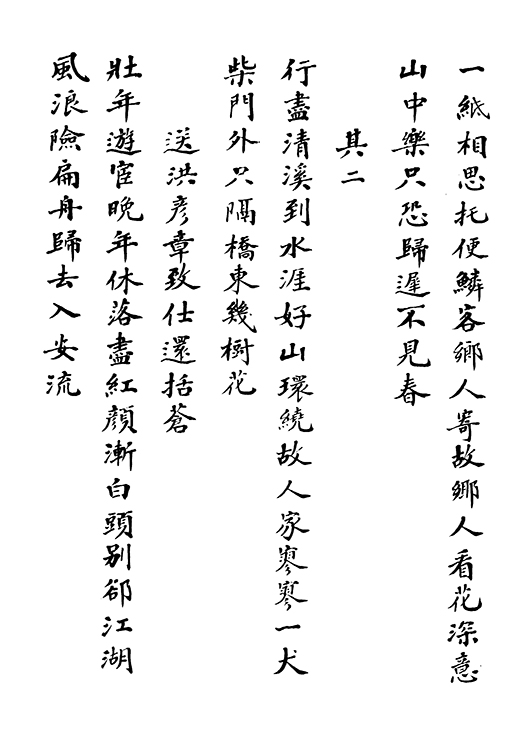 一紙相思托便鱗客鄉人寄故鄉人看花深意
山中樂只恐歸遲不見春
其二
行盡清溪到水涯好山環繞故人家寥寥一犬
柴門外只隔橋東幾樹花
送洪彥章致仕還括蒼
壯年遊宦晚年休落盡紅顏漸白頭別郤江湖
風浪險扁舟歸去入安流